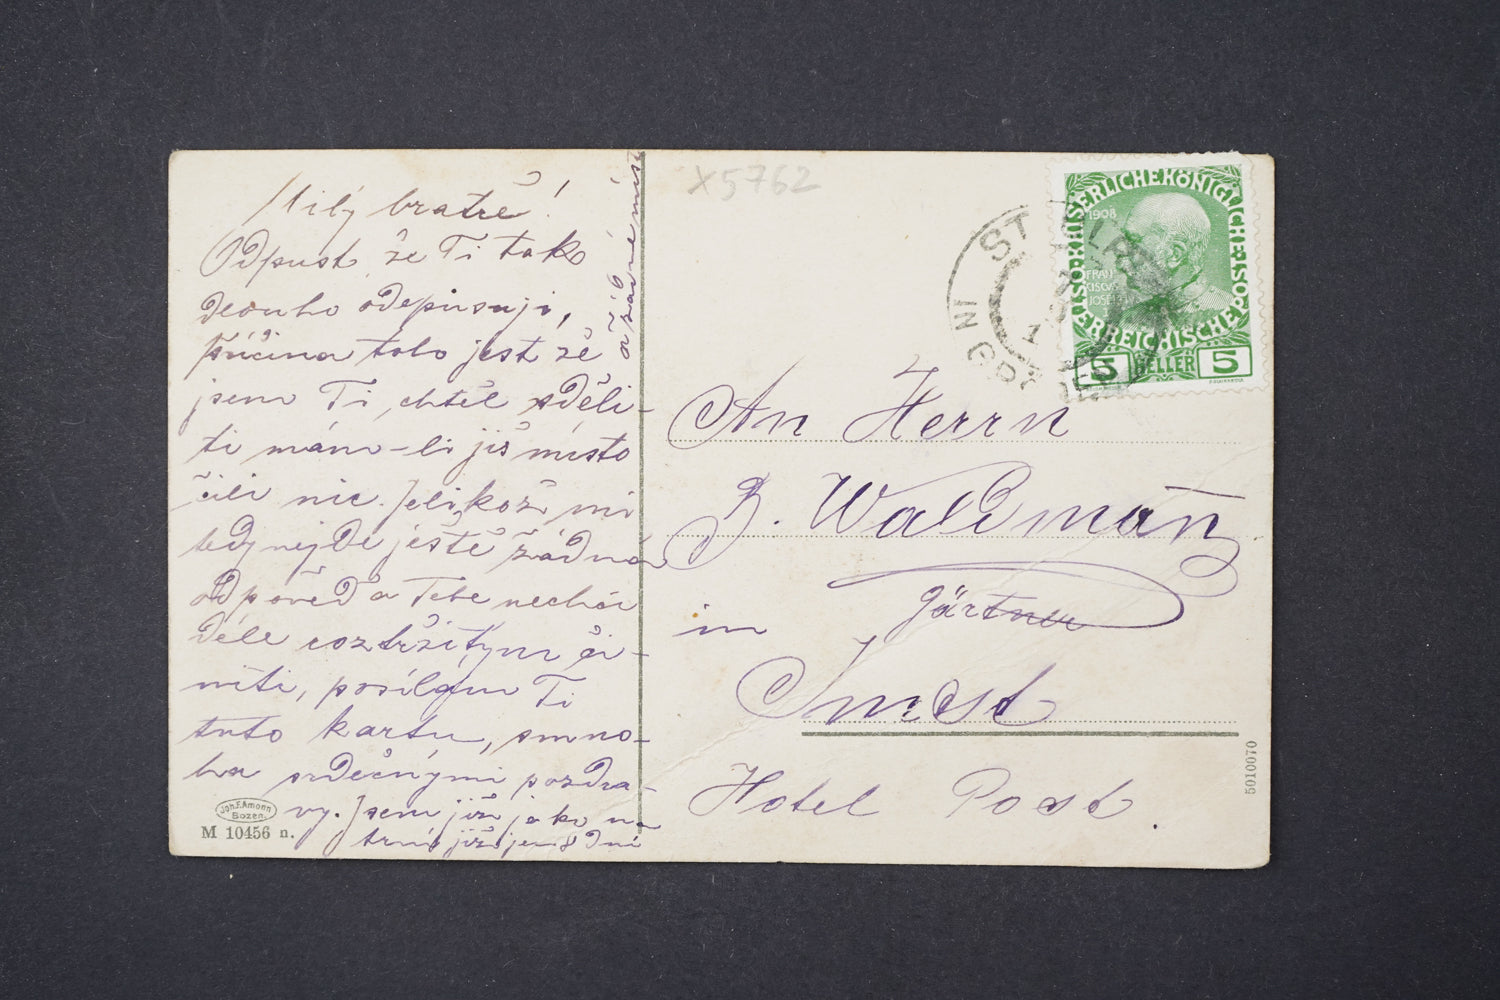 Milý bratře!
Odpust že Ti tak
dlouho odepisuji,
příčina toho jest že
jsem Ti chtěl sděli-
ti mám-li již místo
čili nic. Jelikož mi
tedy nejde ještě žádná
odpověd a Tebe nechci
déle roztržitým či-
niti, posílám Ti
tuto kartu, smno-
ha srdečnými pozdra-
vy. Jsem již jako na
trní, již jen 8 dní
a žádné míst
X5762
ST.
IN GRÖDEN
KAISERLICHE KÖNIGLICHE ÖSTERREICHISCHE
1908
FRAN
CISCVS
JOSEF I
5 HELLER 5
An Herrn
B. Waldman̄
Gärtner
in
Imst
Hotel Post.
Joh. F. Amonn
Bozen.
M 10456 n.
5010070